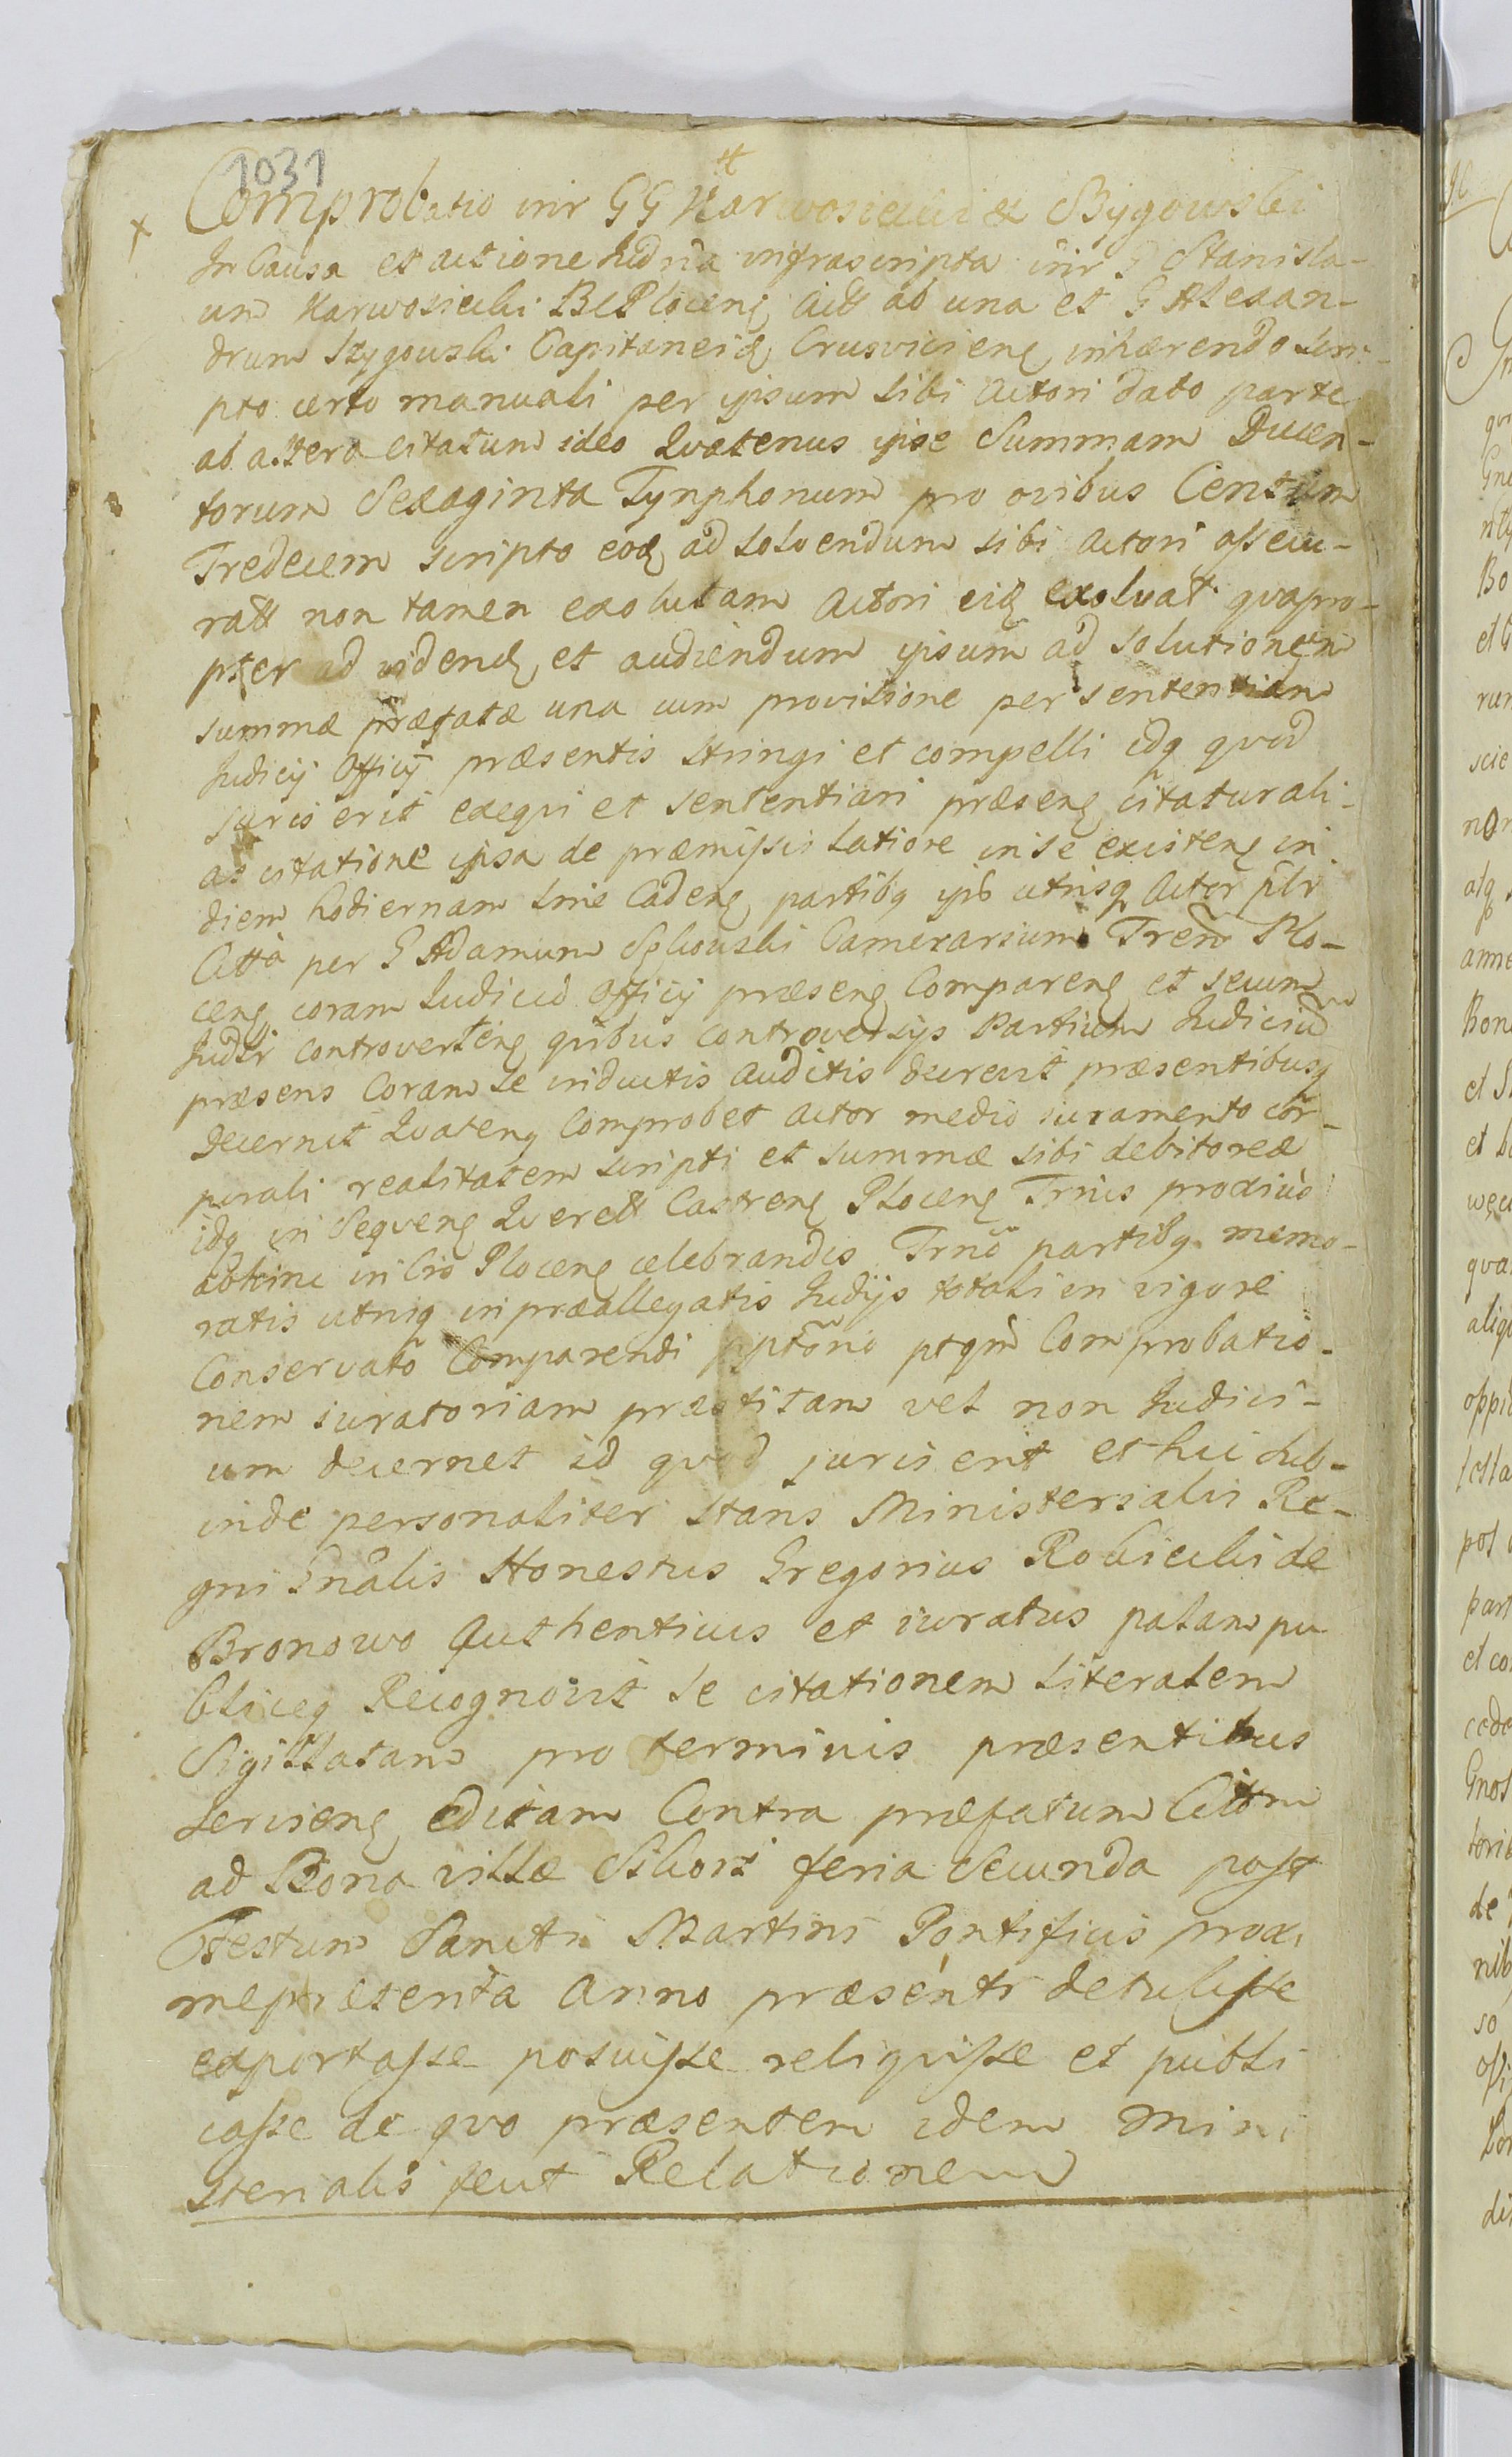 1031
Comprobatio intr GG Karwosiecki & Bÿgowski
In Causa et actione Iudria infrascripta intr G Stanisla-
um Karwosiecki BCPlocens Actt ab una et G Alexan-
drum Szygowski Capitaneid Crusviciens inhærendo scri-
pto certo manuali per ipsum sibi Actori dato parte
ab altera citatum ideo Qvatenus ipse Summam Ducen-
torum Sexaginta Tynphonum pro ovibus Centum
Tredecem scripto eod ad solvendum sibi Actori assecu-
ratt non tamen exolutam Actori eid exolvat qvapro-
pter ad videnđ et audiendum ipsum ad solutionem
summæ præfatæ una cum provisione per sententiam
Iudicij Officij præsentis stringi et compelli idq qvod
iuris erit exeqvi et sententiari præsens citatur ali-
as citatione ipsa de præmissis latiore in se existens in
diem hodiernam Cadens partibq utrisq Actor
Citta per G Adamum Camerarium Treno Plo-
cens coram Iudicio Officij præsens Comparens et secum
Iudlr controvertens qvibus controversijs Partium Iudiciu
præsens Coram se inductis Auditis decrevit præsentibusq
decernit Qvatenq Comprobet Actor medio iuramento cor-
porali realitatem scripti et summæ sibi debitoreæ
idq in Seqvens Qverell Castrens Plocens Trnis proxiuo
abhinc in Cro Plocens celebrandis Trno partibq memo-
ratis utriq in præallegatis Iudijs totali in vigore
Conservato Comparendi pptorio ptqm Comprobatio-
nem iuratoriam præstitam vel non Iudici-
um decernet id qvod juris erit et hic sub-
inde personaliter stans Ministerialis Re-
gni Gnalis Honestus Gregorius Robiecki de
Bronowo Authenticus et iuratus palam pu
bliceq Recognovit se citationem literalem
Sigillatam pro terminis præsentibus
serviens editam Contra præfatum Cittm
ad Bona villæ feria Secunda post
Festum Sancti Martini Pontificis proxi
mepræterita Anno præsenti detulisse
exportasse posuisse reliqvisse et publi
casse de qvo præsentem idem Mini
sterialis fecit Relationem